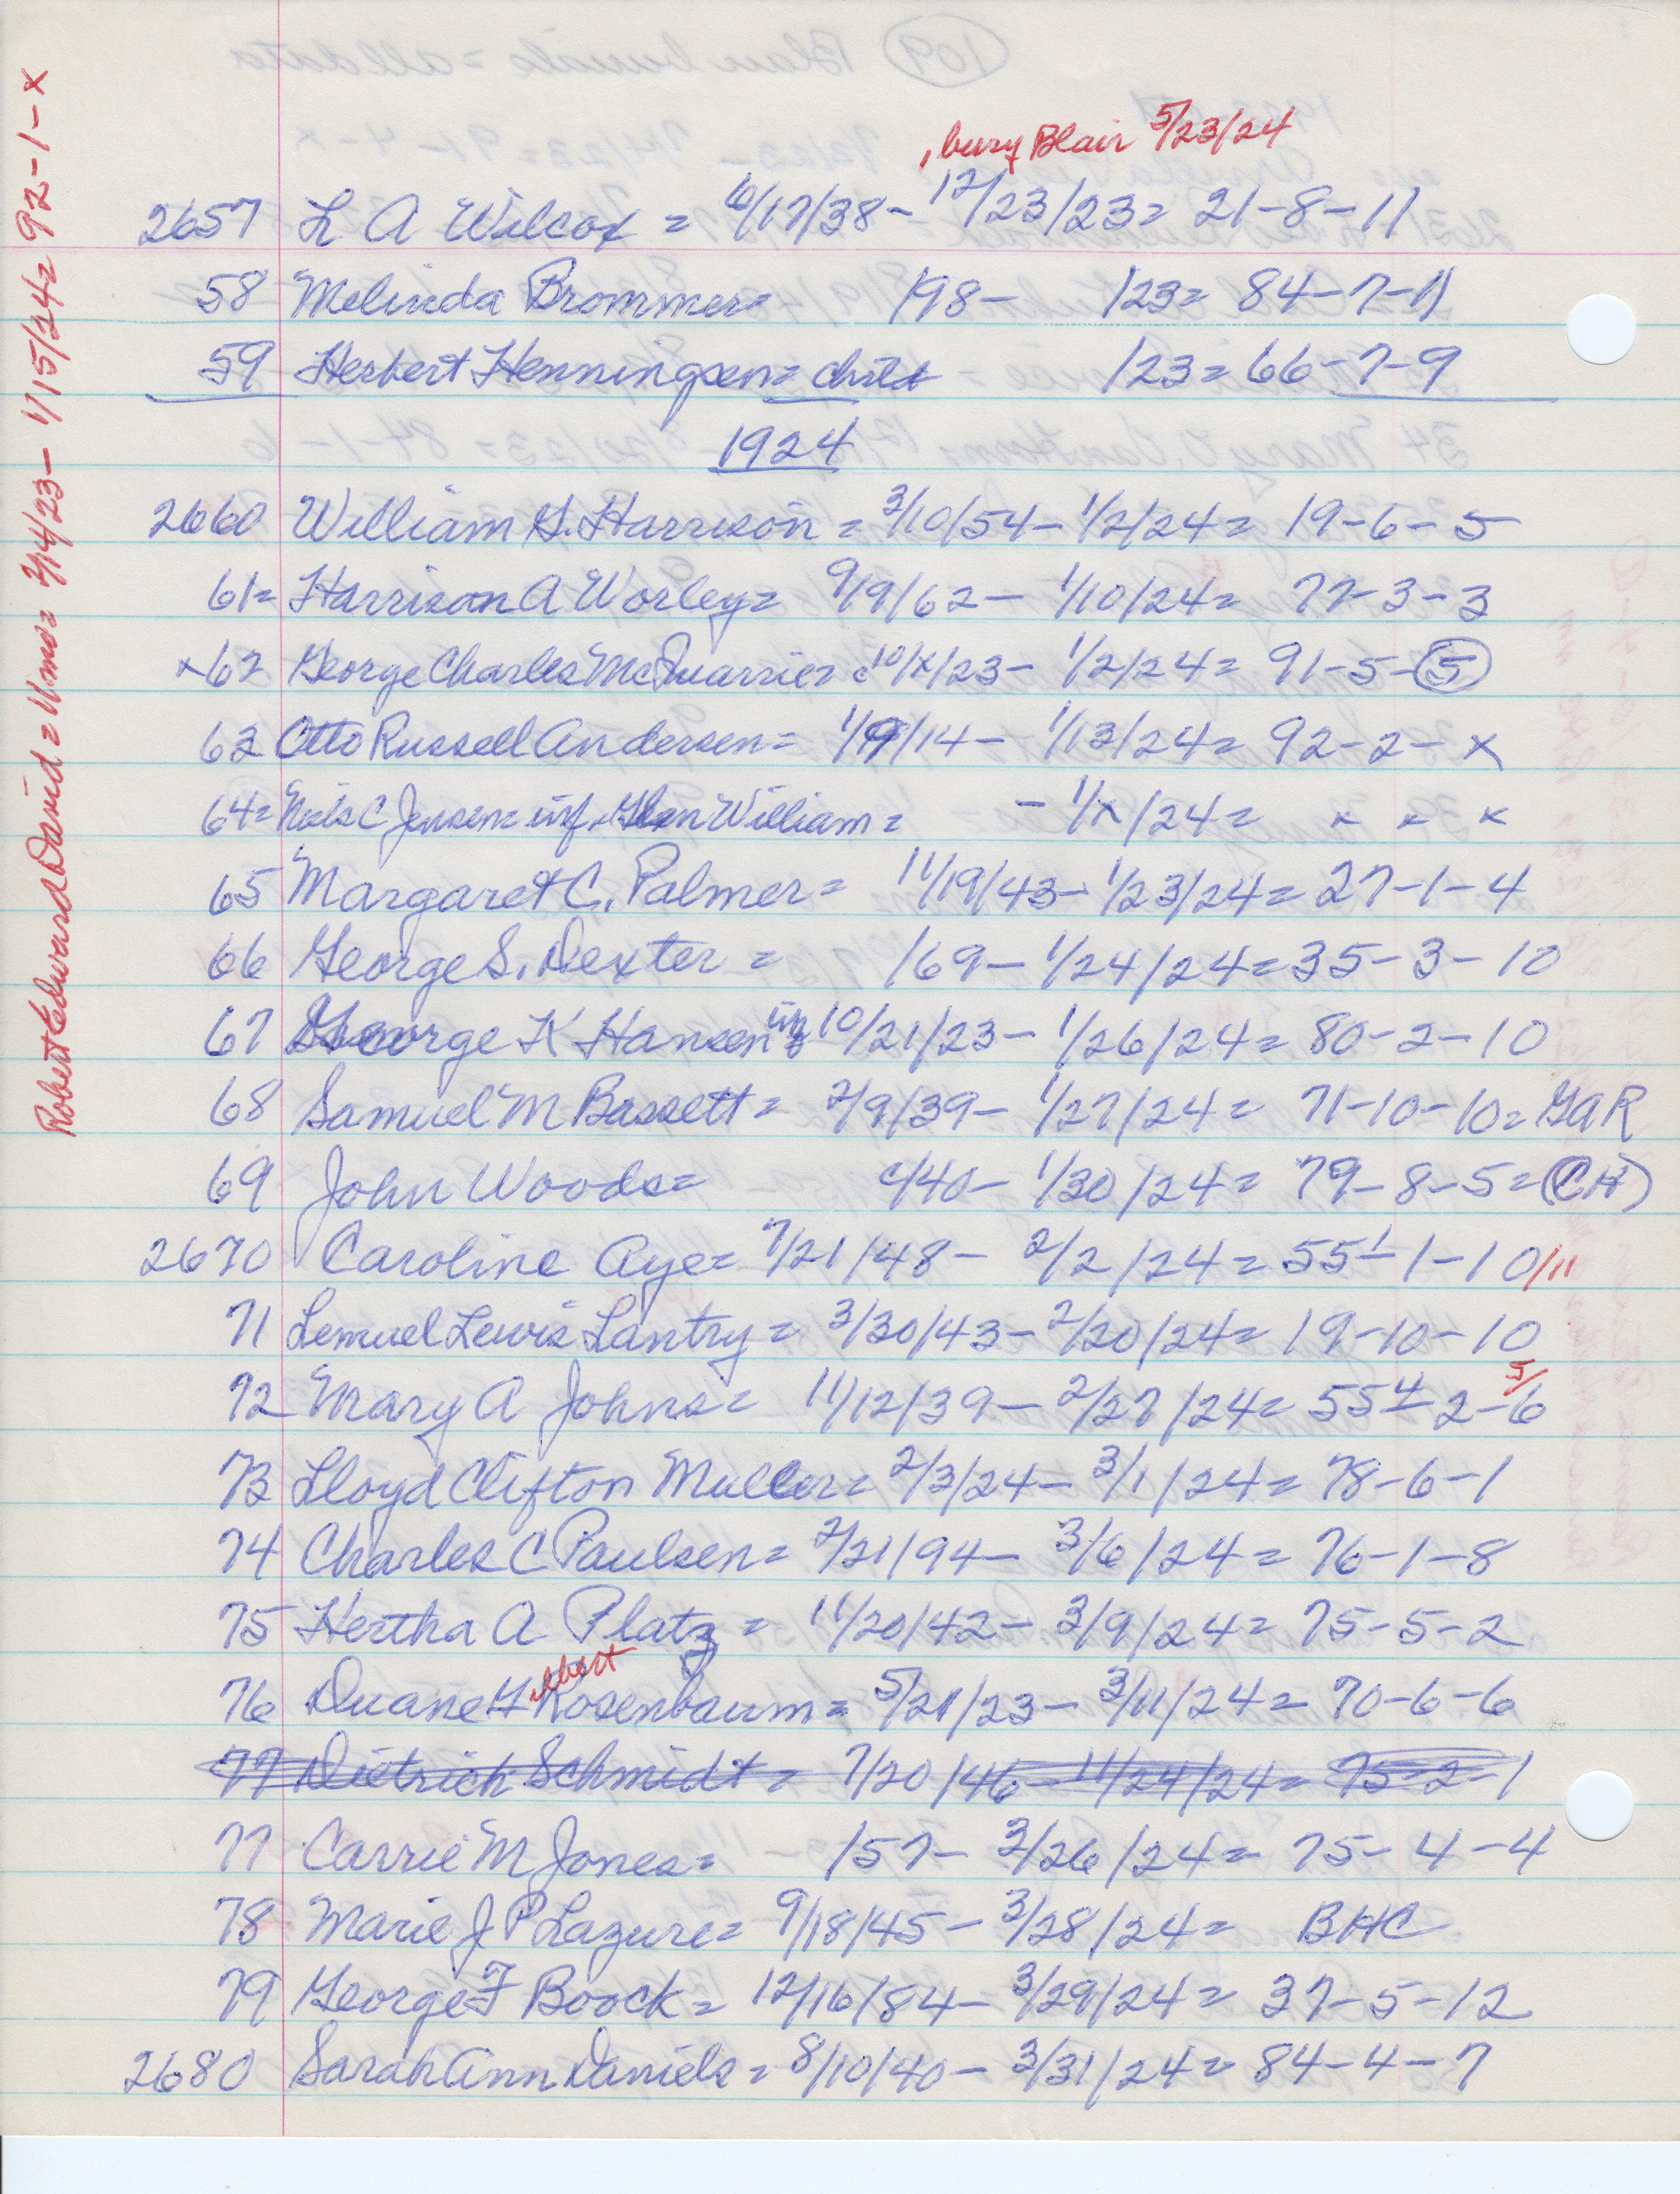 , bury Blair 5/23/24
2657 L A Wilcox = 10/17/38 - 12/23/23 = 21-8-11
58 Melinda Brommer = /98 - /23 = 84-7-11
59 Herbert Henningsen = child /23 = 66-7-9
1924
2660 William G. Harrison = 3/10/54 - 1/2/24 = 19-6-5
61 = Harrison A Worley = 9/9/62 - 1/10/24 = 77-3-3
x62 George Charles McQuarrie = c10/x/23 - 1/2/24 = 91-5-5
63 Otto Russell Andersen = 1/9/14 - 1/13/24 = 92-2-x
64 = Niels C Jensen = inf. Glen William = - 1/x/24 = x x x
65 Margaret C. Palmer = 11/19/43 - 1/23/24 = 27-1-4
66 George S. Dexter = /69 - 1/24/24 = 35-3-10
67 George K Hansen inf 10/21/23 - 1/26/24 = 80-2-10
68 Samuel M Bassett = 2/9/39 - 1/27/24 = 71-10-10 = GAR
69 John Woods = c/40 - 1/30/24 = 79-8-5 = (CH)
2670 Caroline Aye = 7/21/48 - 2/2/24 = 55 1-1-10/11
71 Lemuel Lewis Lantry = 3/30/43 - 2/20/24 = 19-10-10
72 Mary A Johns = 11/12/39 - 2/27/24 = 55 4-2-5/6
73 Lloyd Clifton Muller = 2/3/24 - 3/1/24 = 78-6-1
74 Charles C Paulsen = 2/21/94 - 3/6/24 = 76-1-8
75 Hertha A Platz = 11/20/42 - 3/9/24 = 75-5-2
76 Duane Gilbert Rosenbaum = 5/21/23 - 3/11/24 = 70-6-6
77 Dietrich Schmidt = 7/20/46 - 11/24/24 = 75-2-1
77 Carrie M Jones = /57 - 3/26/24 = 75-4-4
78 Marie J P Lazure = 9/18/45 - 3/28/24 = BHC
79 George F Boock = 12/16/84 - 3/29/24 = 37-5-12
2680 Sarah Ann Daniels = 8/10/40 - 3/31/24 = 84-4-7
Robert Edward David = 11mo = 2/14/23 - 1/15/24 = 92-1-x